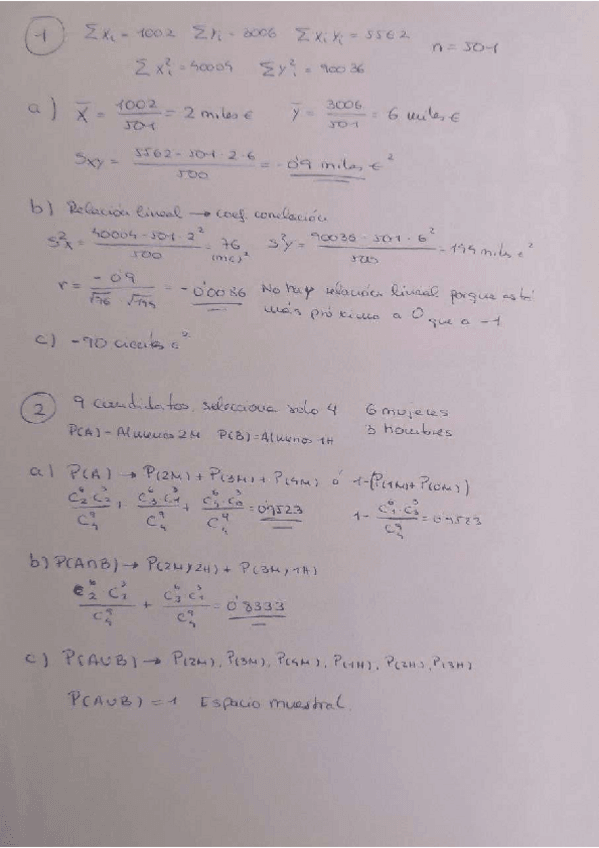 1 Σxi = 1002 Σyi = 3006 Σxi yi = 5562 n = 501
Σxi² = 40004 Σyi² = 90036
a) x̄ = 1002/501 = 2 miles € ȳ = 3006/501 = 6 miles €
Sxy = (5562 - 501·2·6)/500 = -0'9 miles €²
b) Relación lineal → coef. correlación
S²x = (40004 - 501·2²)/500 = 76 (m€)² S²y = (90036 - 501·6²)/500 = 144 miles €²
r = -0'9/(√76 · √144) = -0'0086 No hay relación lineal porque está
más próximo a 0 que a -1
c) -90 €²
2 9 candidatos, selecciona solo 4 6 mujeres
P(A) = Al menos 2M P(B) = Al menos 1H 3 hombres
a) P(A) → P(2M) + P(3M) + P(4M) ó 1-(P(1M)+P(0M))
C⁶₂·C³₂/C⁹₄ + C⁶₃·C³₁/C⁹₄ + C⁶₄·C³₀/C⁹₄ = 0'9523 1 - C⁶₁·C³₃/C⁹₄ = 0'9523
b) P(A∩B) → P(2M,2H) + P(3M,1H)
C⁶₂·C³₂/C⁹₄ + C⁶₃·C³₁/C⁹₄ = 0'8333
c) P(A∪B) → P(2M), P(3M), P(4M), P(1H), P(2H), P(3H)
P(A∪B) = 1 Espacio muestral.